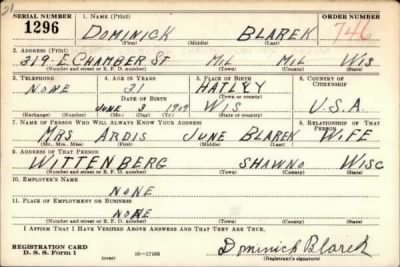 21
SERIAL NUMBER 1. NAME (Print) ORDER NUMBER
1296 DOMINICK BLAREK 746
(First) (Middle) (Last)
2. ADDRESS (Print)
319-E CHAMBER ST MIL MIL WIS
(Number and street or R. F. D. number) (Town) (County) (State)
3. TELEPHONE 4. AGE IN YEARS 5. PLACE OF BIRTH 6. COUNTRY OF CITIZENSHIP
NONE 31 HATLEY
DATE OF BIRTH (Town or county)
JUNE 3 1909 WIS U.S.A
(Exchange) (Number) (Mo.) (Day) (Yr.) (State or country)
7. NAME OF PERSON WHO WILL ALWAYS KNOW YOUR ADDRESS 8. RELATIONSHIP OF THAT PERSON
MRS ARDIS JUNE BLAREK WIFE
(Mr., Mrs., Miss) (First) (Middle) (Last)
9. ADDRESS OF THAT PERSON
WITTENBERG SHAWNO WISC
(Number and street or R. F. D. number) (Town) (County) (State)
10. EMPLOYER'S NAME
NONE
11. PLACE OF EMPLOYMENT OR BUSINESS
NONE
(Number and street or R. F. D. number) (Town) (County) (State)
I AFFIRM THAT I HAVE VERIFIED ABOVE ANSWERS AND THAT THEY ARE TRUE.
REGISTRATION CARD
D. S. S. Form 1 (over) 16-17105 Dominick Blarek
(Registrant's signature)